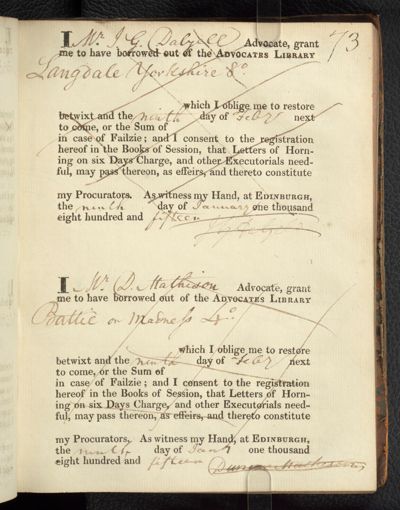 73
I Mr. J. G. Dalyell Advocate, grant
me to have borrowed out of the ADVOCATES LIBRARY
Langdale Yorkshire 8o.
which I oblige me to restore
betwixt and the ninth day of Feby next
to come, or the Sum of
in case of Failzie; and I consent to the registration
hereof in the Books of Session, that Letters of Horn-
ing on six Days Charge, and other Executorials need-
ful, may pass thereon, as effeirs, and thereto constitute
my Procurators. As witness my Hand, at EDINBURGH,
the ninth day of January one thousand
eight hundred and fifteen
I Mr. D. Mathison Advocate, grant
me to have borrowed out of the ADVOCATES LIBRARY
Battie on Madness 4o.
which I oblige me to restore
betwixt and the ninth day of Feby next
to come, or the Sum of
in case of Failzie; and I consent to the registration
hereof in the Books of Session, that Letters of Horn-
ing on six Days Charge, and other Executorials need-
ful, may pass thereon, as effeirs, and thereto constitute
my Procurators. As witness my Hand, at EDINBURGH,
the ninth day of Jany one thousand
eight hundred and fifteen Duncan Matheson